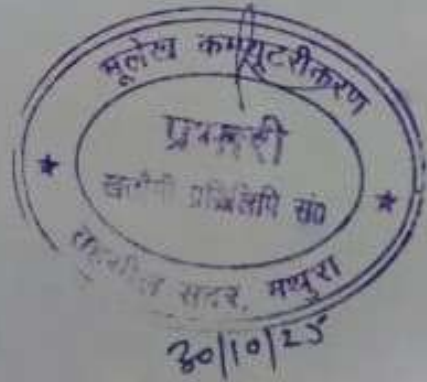 भूलेख कम्प्यूटरीकरण
प्रभारी
खतौनी प्रतिलिपि सं०
तहसील सदर, मथुरा
30/10/25